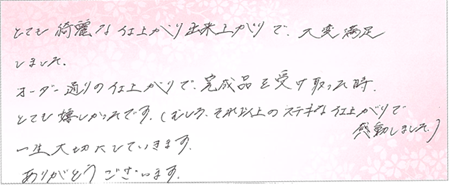 とても綺麗な仕上がり出来上がりで、大変満足
しました。
オーダー通りの仕上がりで、完成品を受け取った時、
とても嬉しかったです。(むしろ、それ以上のステキな仕上がりで
感動しました。)
一生大切にしていきます。
ありがとうございます。